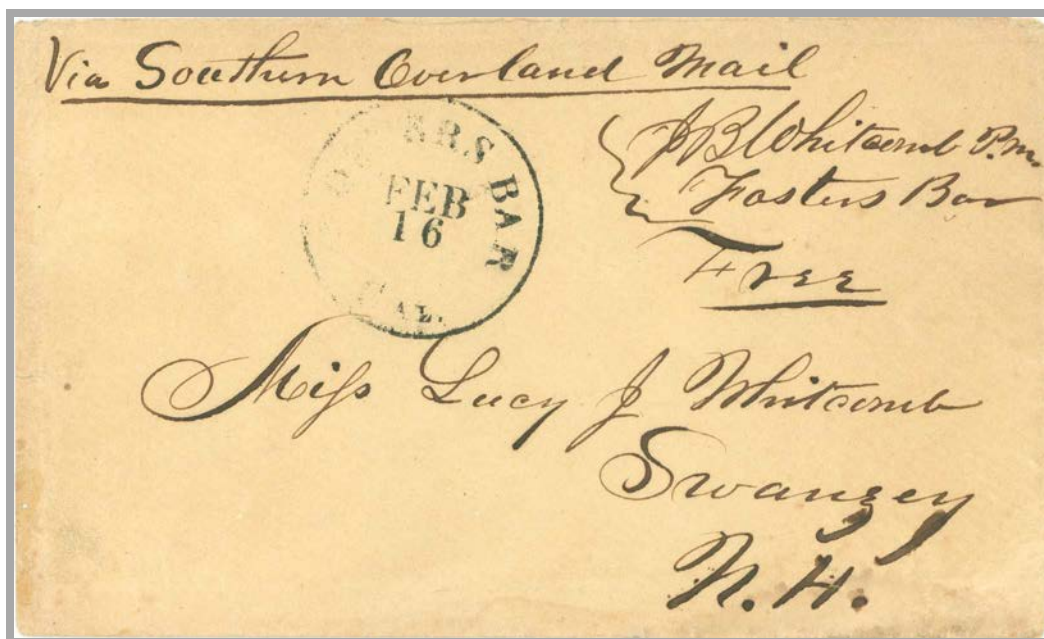 Via Southern Overland Mail
J B Whitcomb P.M.
Fosters Bar
Free
FOSTERS BAR
FEB
16
CAL.
Miss Lucy J Whitcomb
Swanzey
N. H.